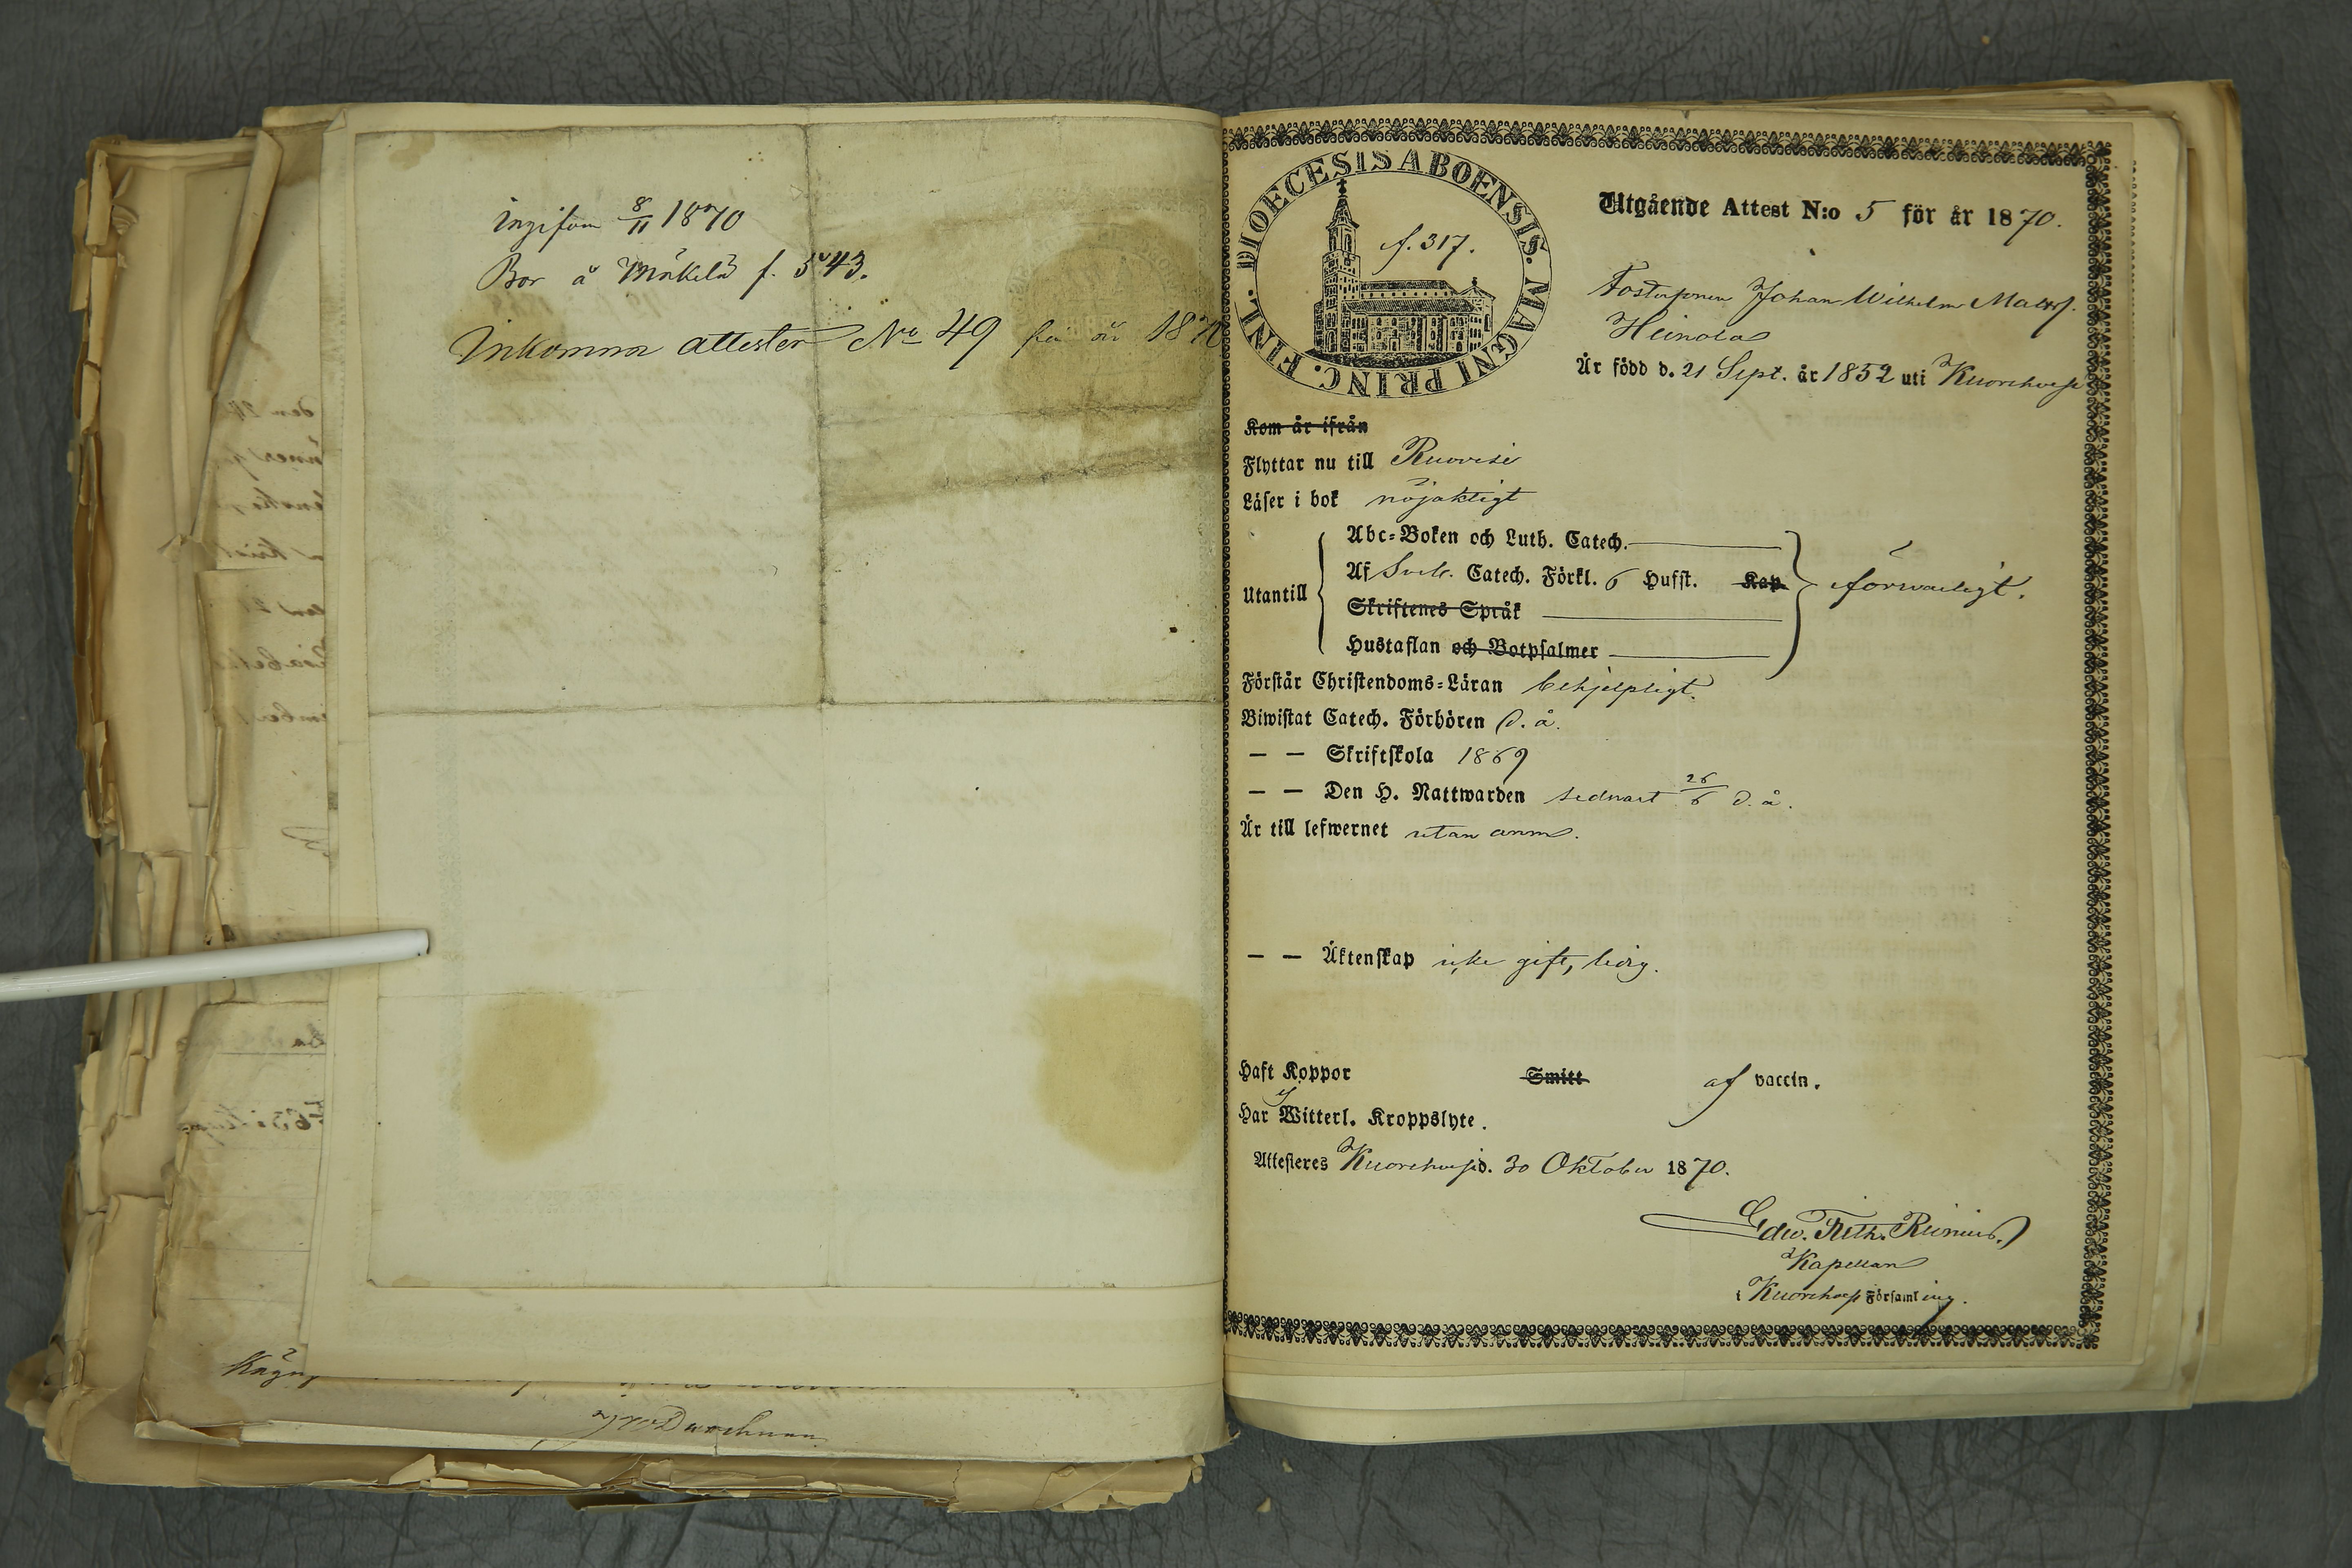 Bor å Mäkelä f. 543.
Inkomna attester No 49 för år 1870
DIOECESIS ABOENSIS. MAGNI PRINC. FINL.
f. 317.
Utgående Attest N:o 5 för år 1870.
Fostersonen Johan Wilhelm Matts.
Heinola
Är född d. 21 Sept. år 1852 uti Kuorehvesi
Kom år ifrån
Flyttar nu till Ruovesi
Läser i bok nöjaktigt
Utantill
Abc-Boken och Luth. Catech.
Af Sveb. Catech. Förkl. 6 Hufst. Kap
Skriftenes Språk
Hustaflan och Botpsalmer
försvarligt.
Förstår Christendoms-Läran behjelpligt.
Biwistat Catech. Förhören d. å.
— — Skriftskola 1869
— — Den H. Nattwarden sednast 26/6 d. å.
Är till lefwernet utan anm.
— — Äktenskap icke gift, ledig.
Haft Koppor Smitt af vaccin.
Har ej Witterl. Kroppslyte.
Attesteres Kuorehvesi d. 30 Oktober 1870.
Edw. Reinius.
Kapellan
i Kuorehvesi Församling.